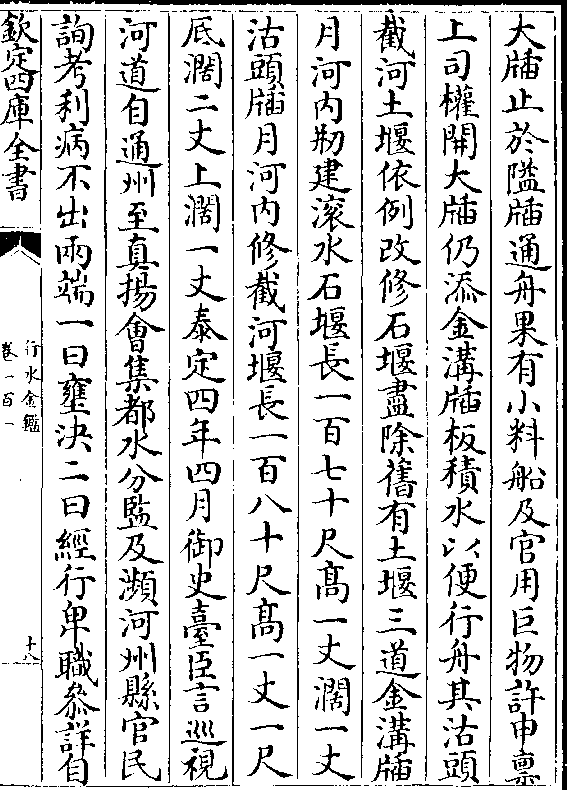 大牐止於隘牐通舟果有小料船及官用巨物許申禀
上司權開大牐仍添金溝牐板積水以便行舟其沽頭
截河土堰依例改修石堰盡除舊有土堰三道金溝牐
月河内剏建滾水石堰長一百七十尺髙一丈濶一丈
沽頭牐月河内修截河堰長一百八十尺髙一丈一尺
底濶二丈上濶一丈泰定四年四月御史臺臣言巡視
河道自通州至真揚會集都水分監及瀕河州縣官民
詢考利病不出兩端一曰壅決二曰經行卑職叅詳自
欽定四庫全書
行水金鑑
卷一百一
十八